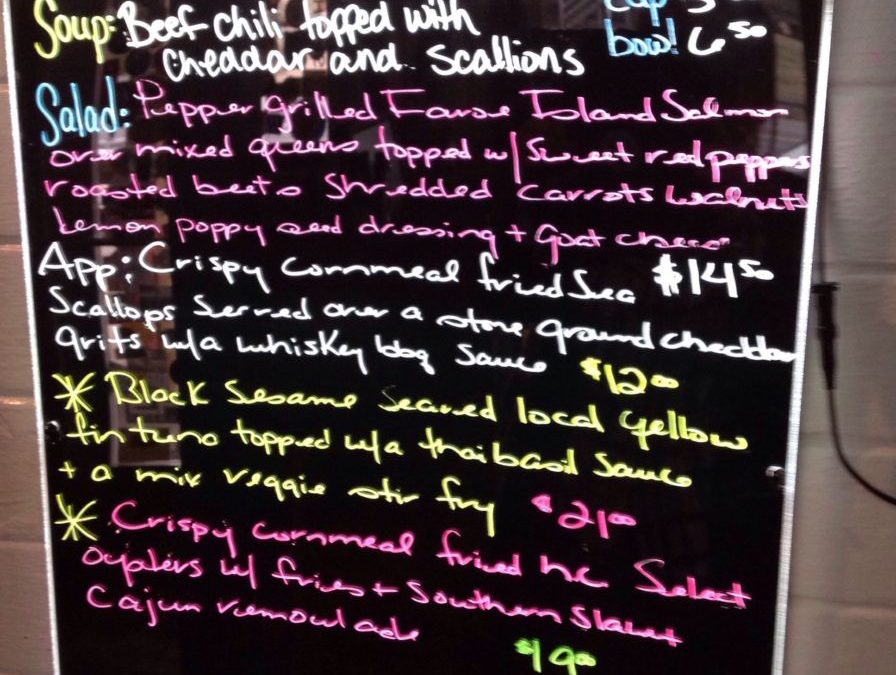 Soup: Beef chili topped with cup 5
cheddar and scallions bowl 6 50
Salad: Pepper grilled Faroe Island Salmon
over mixed greens topped w/ Sweet red peppers
roasted beets shredded carrots walnuts
Lemon poppy seed dressing + Goat cheese
App: Crispy cornmeal fried Sea $14 50
Scallops Served over a stone ground cheddar
grits w/a whiskey bbq sauce $12 00
* Black Sesame Seared local yellow
fin tuna topped w/a thai basil sauce
+ a mix veggie stir fry $21 00
* Crispy cornmeal fried NC Select
oysters w/ fries + Southern Slaw +
Cajun remoulade
$19 00